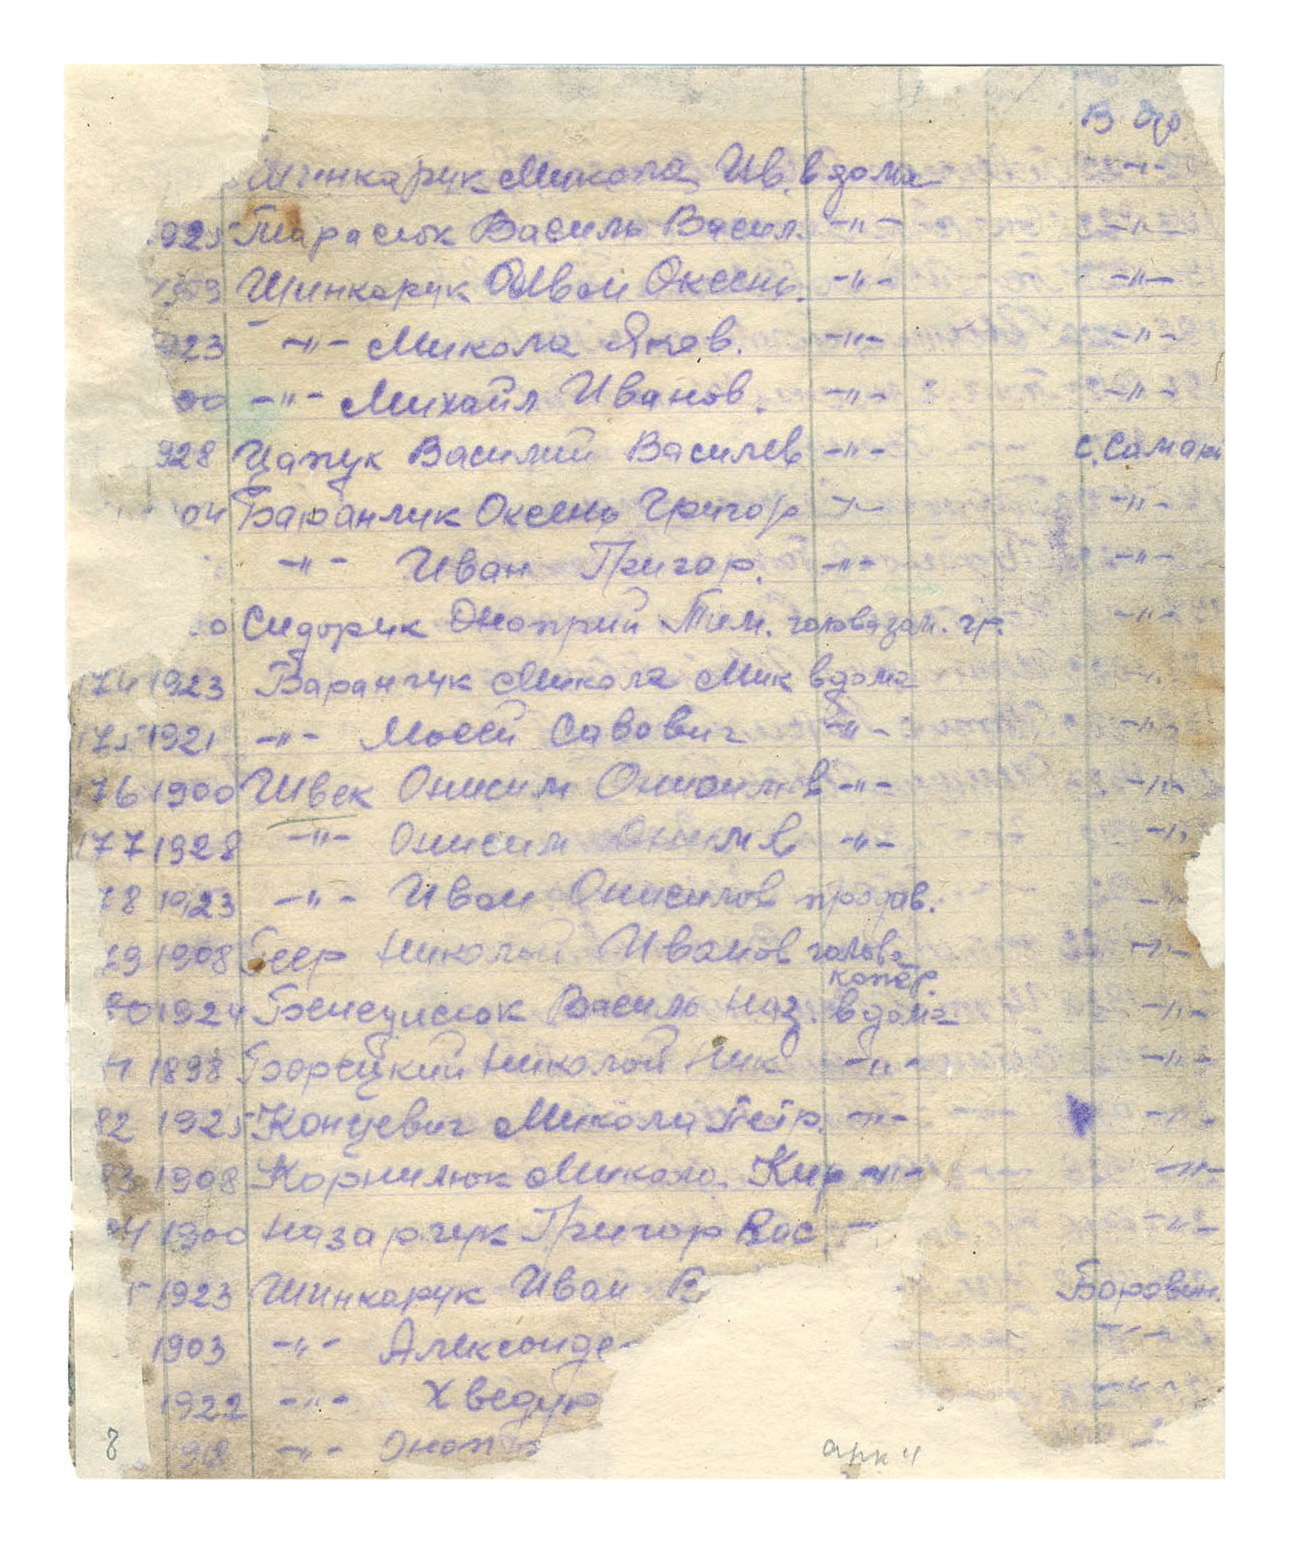 Шинкарук Микола Ив. вдома -"-
925 Тарасюк Василь Васил. -"- -"-
Шинкарук Иван Оксень. -"- -"-
923 -"- Микола Яков. -"- -"-
00 -"- Михайл Иванов. -"- -"-
928 Цапук Василий Василев -"- с. Самари
04 Баранчик Оксень Григор -"-
-"- Иван Григор. -"- -"-
0 Сидорик Оноприй Тим. -"-
174 1923 Баранчук Микола Мик вдома -"-
175 1921 -"- Мосей Савович -"- -"-
176 1900 Швек Онисим Онисимов -"- -"-
177 1928 -"- Онисим -"- -"-
78 1923 -"- Иван Онисимов продав. -"-
79 1908 Беер Николай Иванов голова -"-
копер.
80 1924 Василь Наз. вдома -"-
1 1898 Борецкий Николай Ник -"- -"-
82 1925 Концевич Микола Петр. -"- -"-
83 1908 Корнилюк Микола Кир -"- -"-
84 1900 Назарчук Григор Вас - -"-
5 1923 Шинкарук Иван В Боровин.
1903 -"- Александе -"-
1922 -"- Хведур -"-
918 -"- Оноп
8 арк 4